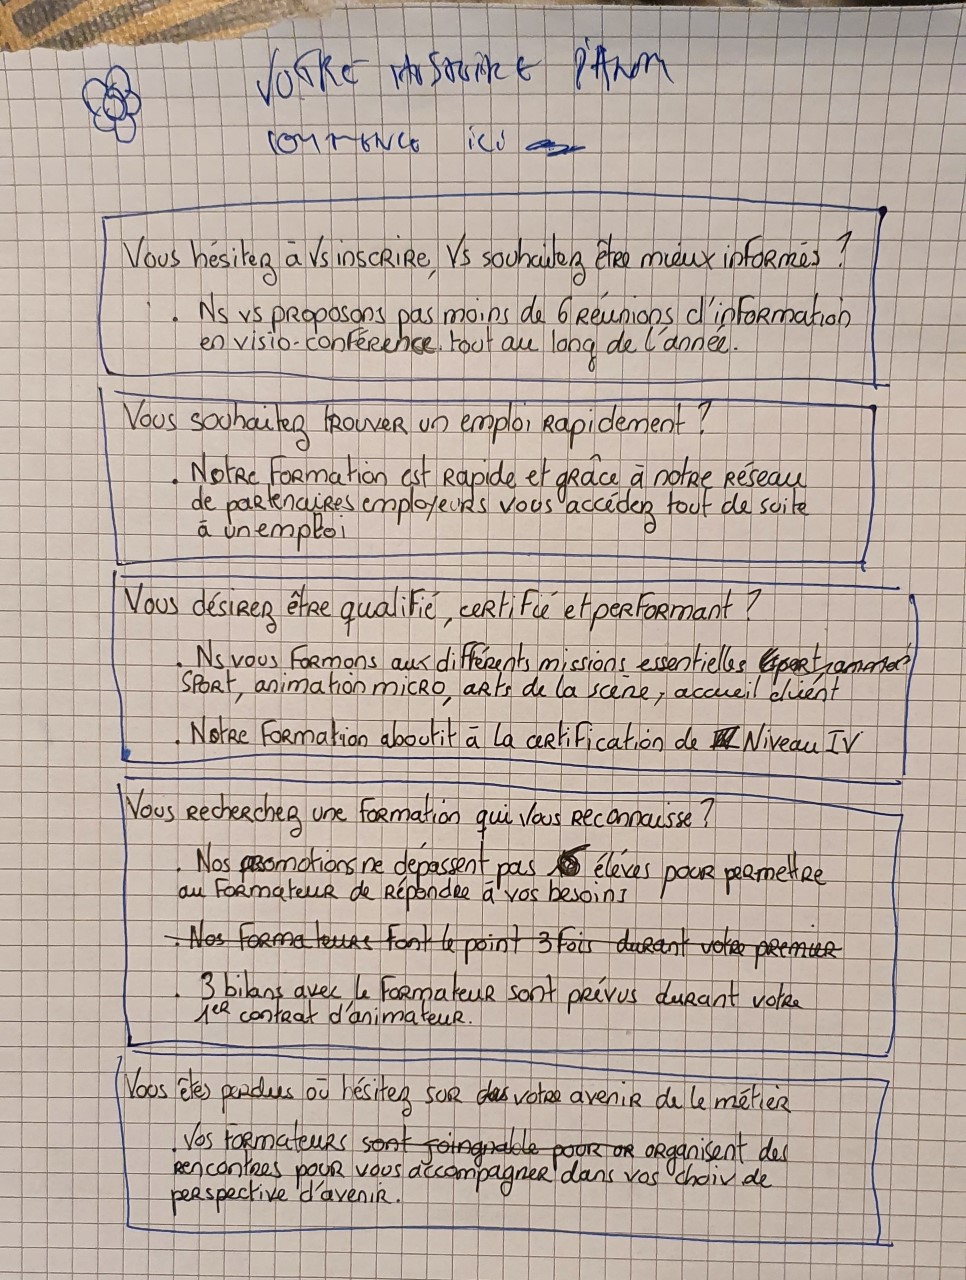 VOTRE HISTOIRE D'ANIM
COMMENCE ici
Vous hésitez à Vs inscrire, Vs souhaitez être mieux informés ?
. Ns vs proposons pas moins de 6 Réunions d'information
en visio-conférence tout au long de l'année.
Vous souhaitez trouver un emploi rapidement ?
. Notre formation est rapide et grâce à notre réseau
de partenaires employeurs vous accédez tout de suite
à un emploi
Vous désirez être qualifié, certifié et performant ?
. Ns vous formons aux différents missions essentielles
SPORT, animation micro, arts de la scène, accueil client
. Notre formation aboutit à la certification de Niveau IV
Vous recherchez une formation qui vous reconnaisse ?
. Nos promotions ne dépassent pas élèves pour permettre
au formateur de répondre à vos besoins
. Nos formateurs font le point 3 fois durant votre premier
. 3 bilans avec le formateur sont prévus durant votre
1er contrat d'animateur.
Vous êtes perdus où hésitez sur votre avenir de le métier
. Vos formateurs sont joingnable pour or organisent des
rencontres pour vous accompagner dans vos choix de
perspective d'avenir.